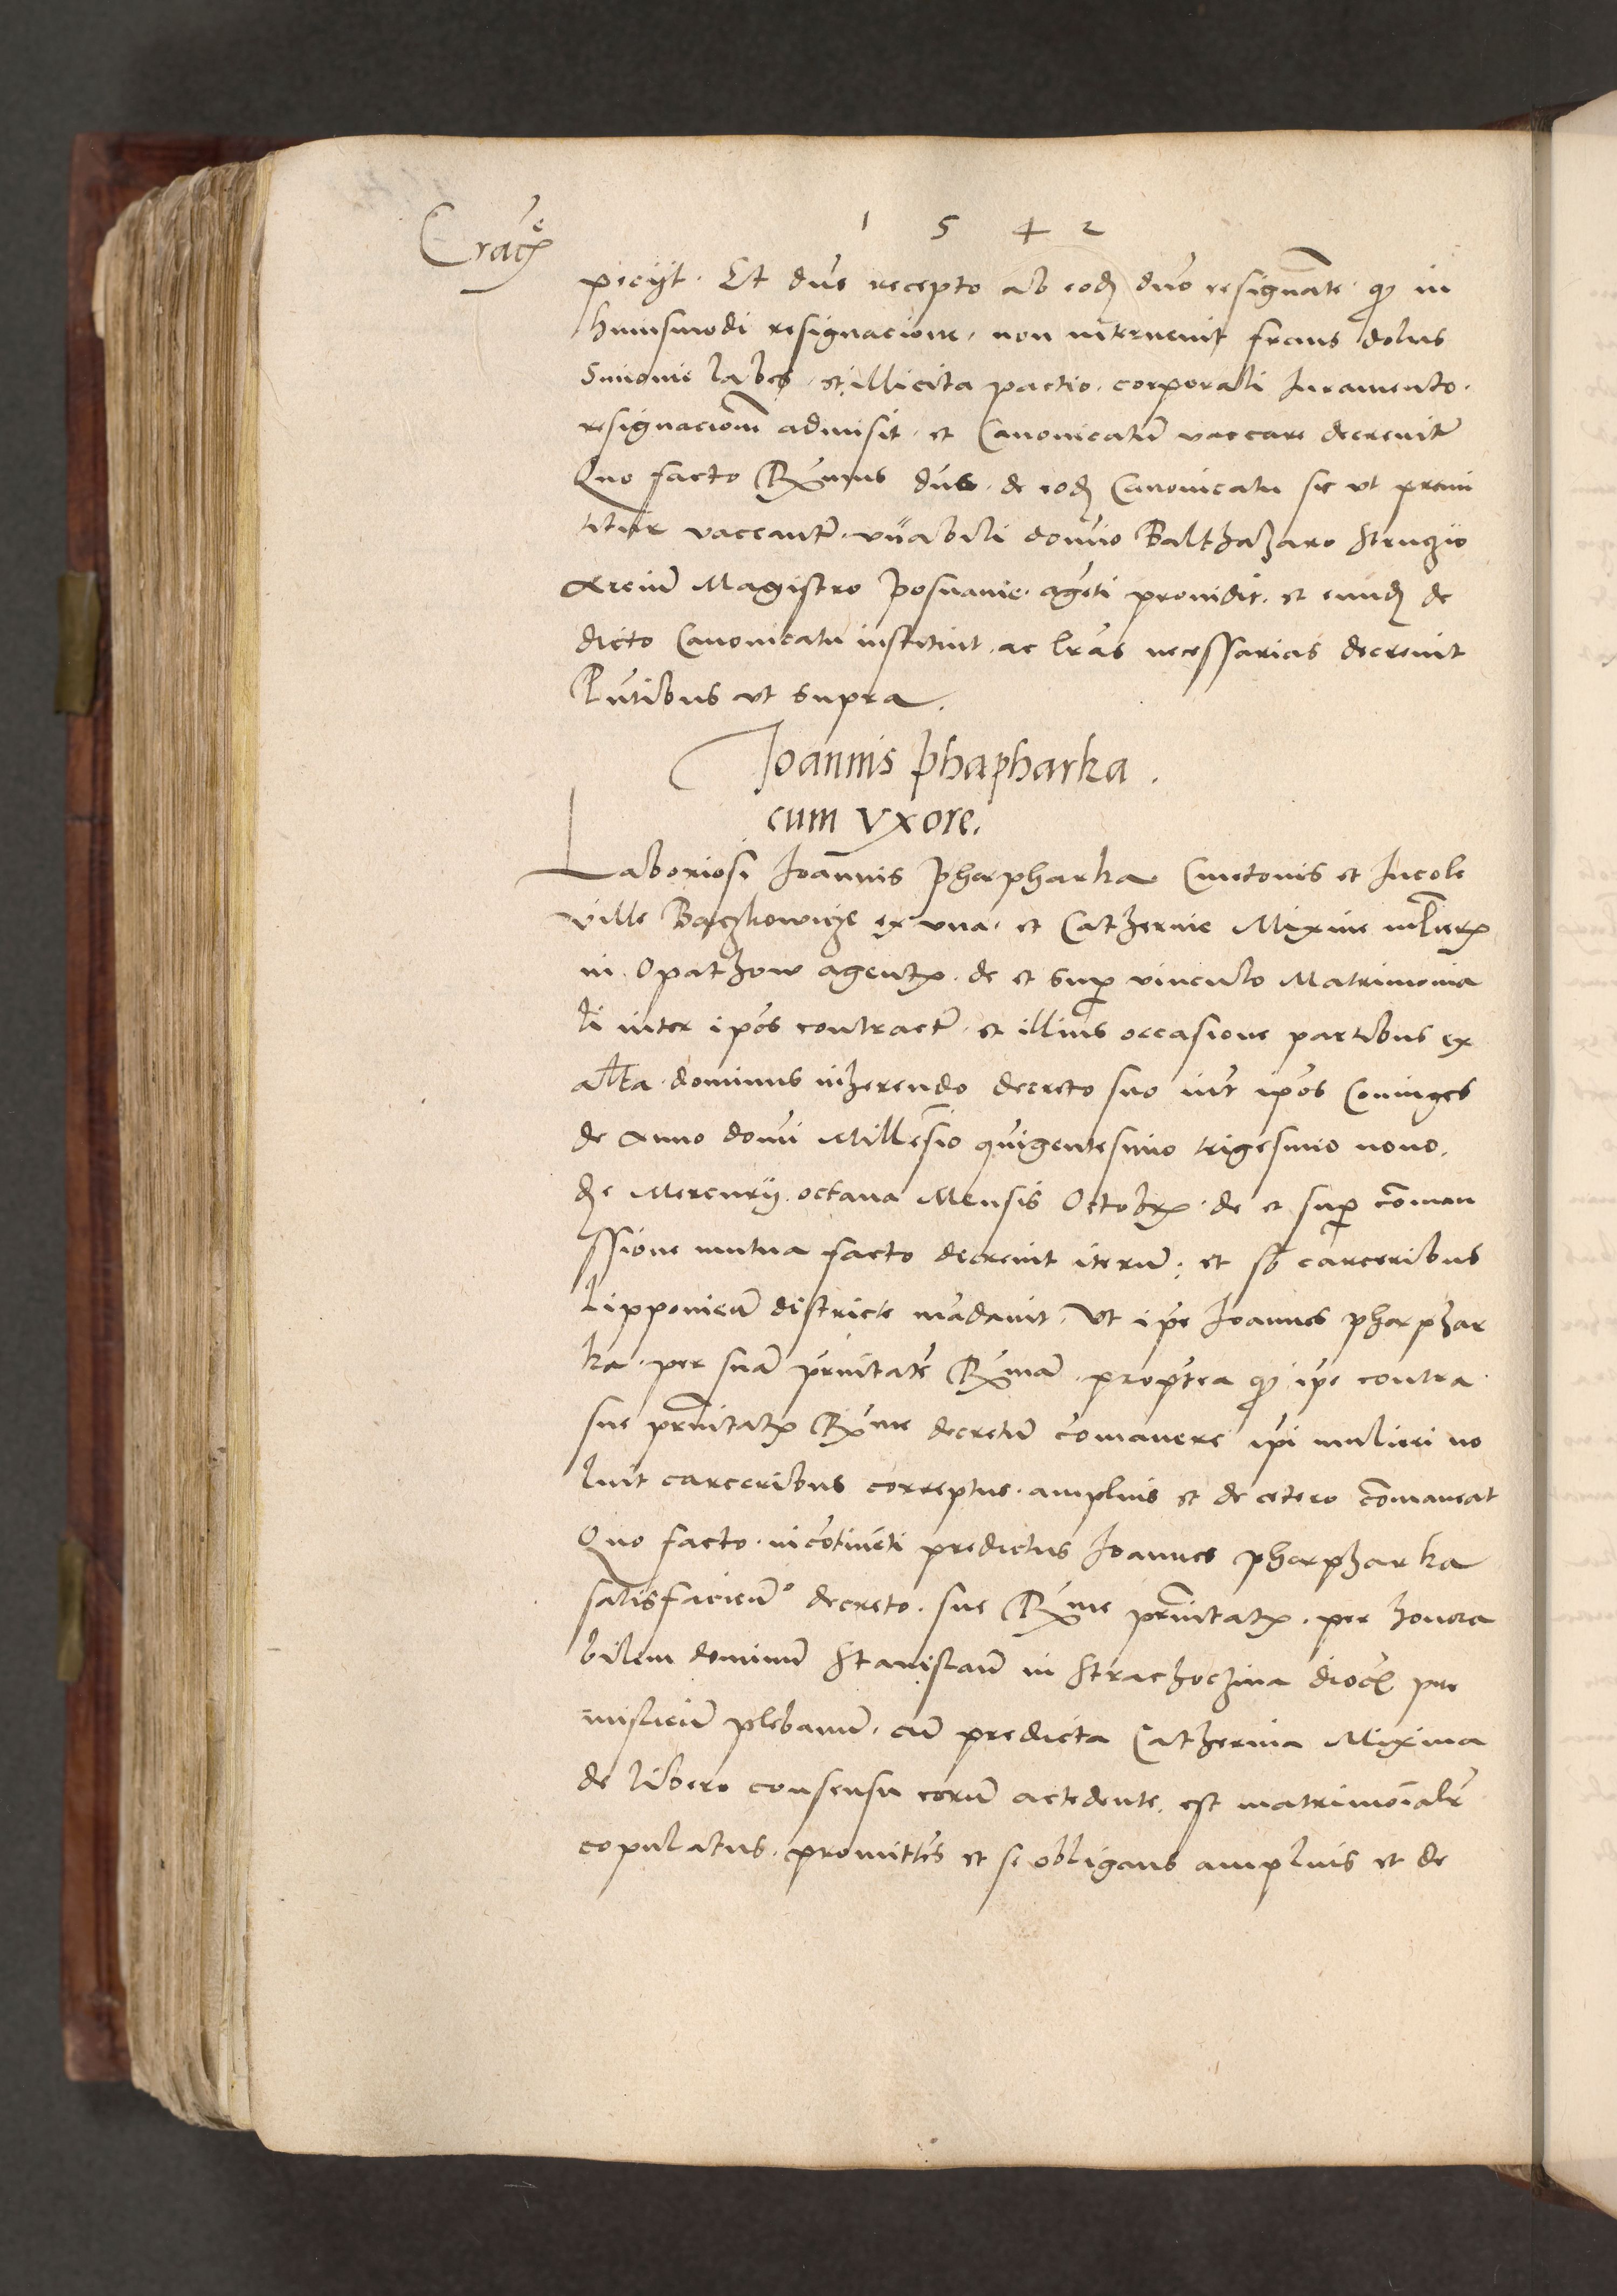 Cracē
1 5 4 2
picijt. Et dn̄s recepto ab eod̄ dn̄o resignan̄te qȝ in
huiusmodi resignacione, non interuenit fraus dolus
Simonie labes, et illicita pactio, corporali Iuramento.
resignaciom̄ admisit, et Canonicatū vaccare decreuit
Quo facto Rx̄mus dn̄s. de eod̄ Canonicatu sic vt premi
titur vaccan̄t. vn̄abili domino Balthazaro Struzio
Arciū Magistro Posnanie. agēti prouidit. et eund̄ de
dicto Canonicatu instituit. ac lr̄as necessarias decreuit
Pn̄tibus vt supra.
Ioannis Phapharka.
cum vxore.
Laboriosi Ioannis Pharpharka Cmetonis et Incole
ville Baczkowicze ex vna. et Catherine Mixine mulierȝ
in Opathow agentȝ. de et sup̄ vinculo Matrimonia
li inter ip̄os contract̄. et illius occasione partibus ex
altā. dominus inherendo decreto suo int̄ ip̄os Coniuges
de Anno domi Millēsīo quīgentesimo trigesimo nono.
die Mercurij octaua Mensis Octobrȝ. de et sup̄ cōman
ssione mutua facto decreuit iterū, et sb̄ carceribus
Lipponieū districte mādauit. Vt ip̄e Ioannes pharphar
ka. per suā prn̄itatē Rx̄mā. prop̄terea qȝ ip̄e contra
sue prn̄itatȝ Rx̄me decretū cōmanere ip̄i mulieri no
luit carceribus correptus. amplius et de cetero cōmaneat
Quo facto. incōtinēti predictus Ioannes pharpharka
satisfacieū decreto. sue Rx̄me prn̄itatȝ. per honora
bilem dominū Stanislaū in Strachoczina diocȝ pre
mislieū plebanū. cū predicta Catherina Mixina
de libero consensu eorū actedente. est matrimoīalr̄
copulatus. promittēs et se obligans amplius et de